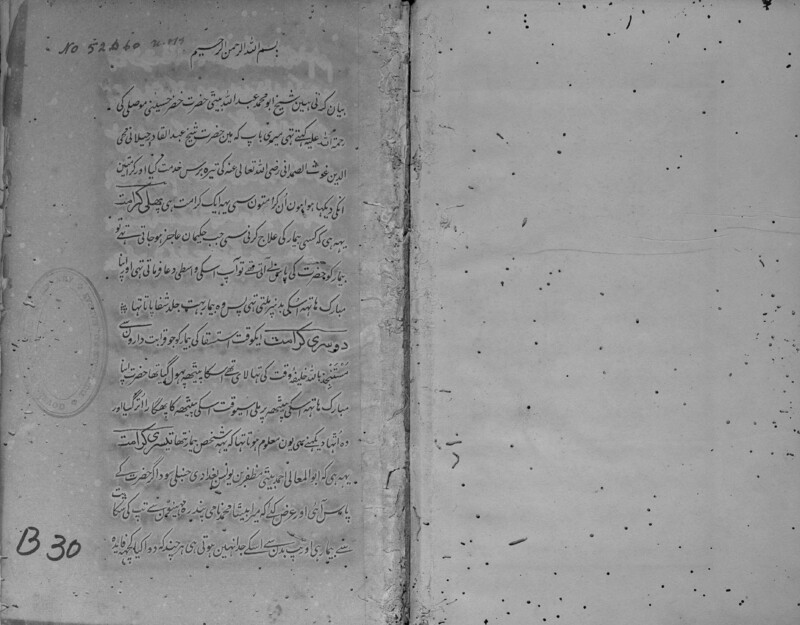 No 52 B 60
بسم اللہ الرحمن الرحیم
بیان کرتی ہین شیخ ابو محمد عبد اللہ بیٹی حضرت خضر حسینی موصلی کی
رحمۃ اللہ علیہ کہتی تہی میری باپ کہ مین حضرت شیخ عبد القادر جیلانی محی
الدین غوث الصمدانی رضی اللہ تعالی عنہ کی تیرہ برس خدمت کیا اور کرامتین
انکی دیکہا ہوا ہون اُن کرامتون سی یہہ ایک کرامت ہی پھلی کرامت
یہہ ہی کہ کسی بیمار کی علاج کرنی سی جب حکیمان عاجز ہو جاتی تہے تو
بیمار کو حضرت کی پاس لی آتی تہے تو آپ اسکی واسطی دعا فرماتی تہی اور اپنا
مبارک ہاتہہ اسکی بدنپر ملتی تہی پس وہ بیمار بہت جلد شفا پاتا تہا
دوسری کرامت ایکوقت استسقا کی بیمار کو جو قرابت دارون سی
مستنجد باللہ خلیفہ وقت کی تہا لای تہے اسکا پیٹھہ پہول گیا تھا حضرت اپنا
مبارک ہاتہہ اسکی پیٹھہ پر ملی اسیوقت اسکی پیٹھہ کا پھگارا اتر گیا اور
وہ اُٹہا دیکہنے مین یون معلوم ہوتا تہا کہ یہہ شخص بیمار نتھا تیسری کرامت
یہہ ہی کہ ابو المعالی احمد بیٹی مظفر بن یونس بغدادی حنبلی سوداگر حضرت کے
پاس آئی اور عرض کئے کہ میرا بیٹا محمد نامی پندرہ مہینون سے تپ کی شکایت
سے بیمار ہی اور تپ بدن سے اسکے جدا نہین ہوتی ہی ہر چند کہ دوا کیا کچہہ فایدہ
B 30